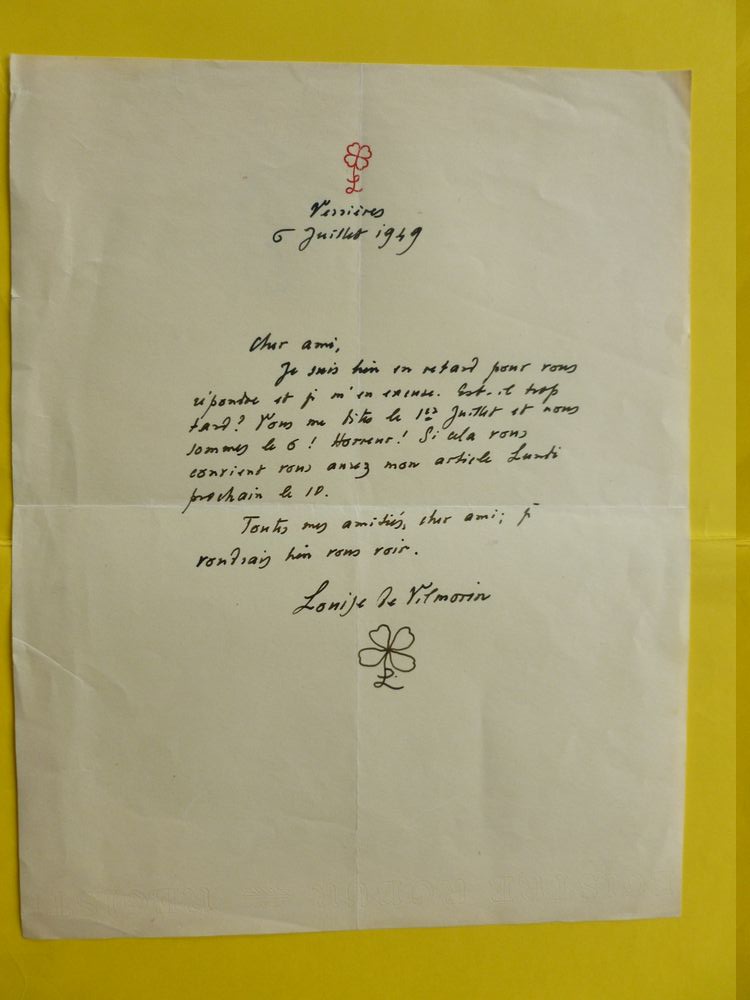 L
Verrières
6 Juillet 1949
Cher ami,
Je suis bien en retard pour vous
répondre et je m'en excuse. Est-il trop
tard? Vous me dites le 1er Juillet et nous
sommes le 6! Horreur! Si cela vous
convient vous aurez mon article Lundi
prochain le 10.
Toutes mes amitiés, cher ami; je
voudrais bien vous voir.
Louise de Vilmorin
L.